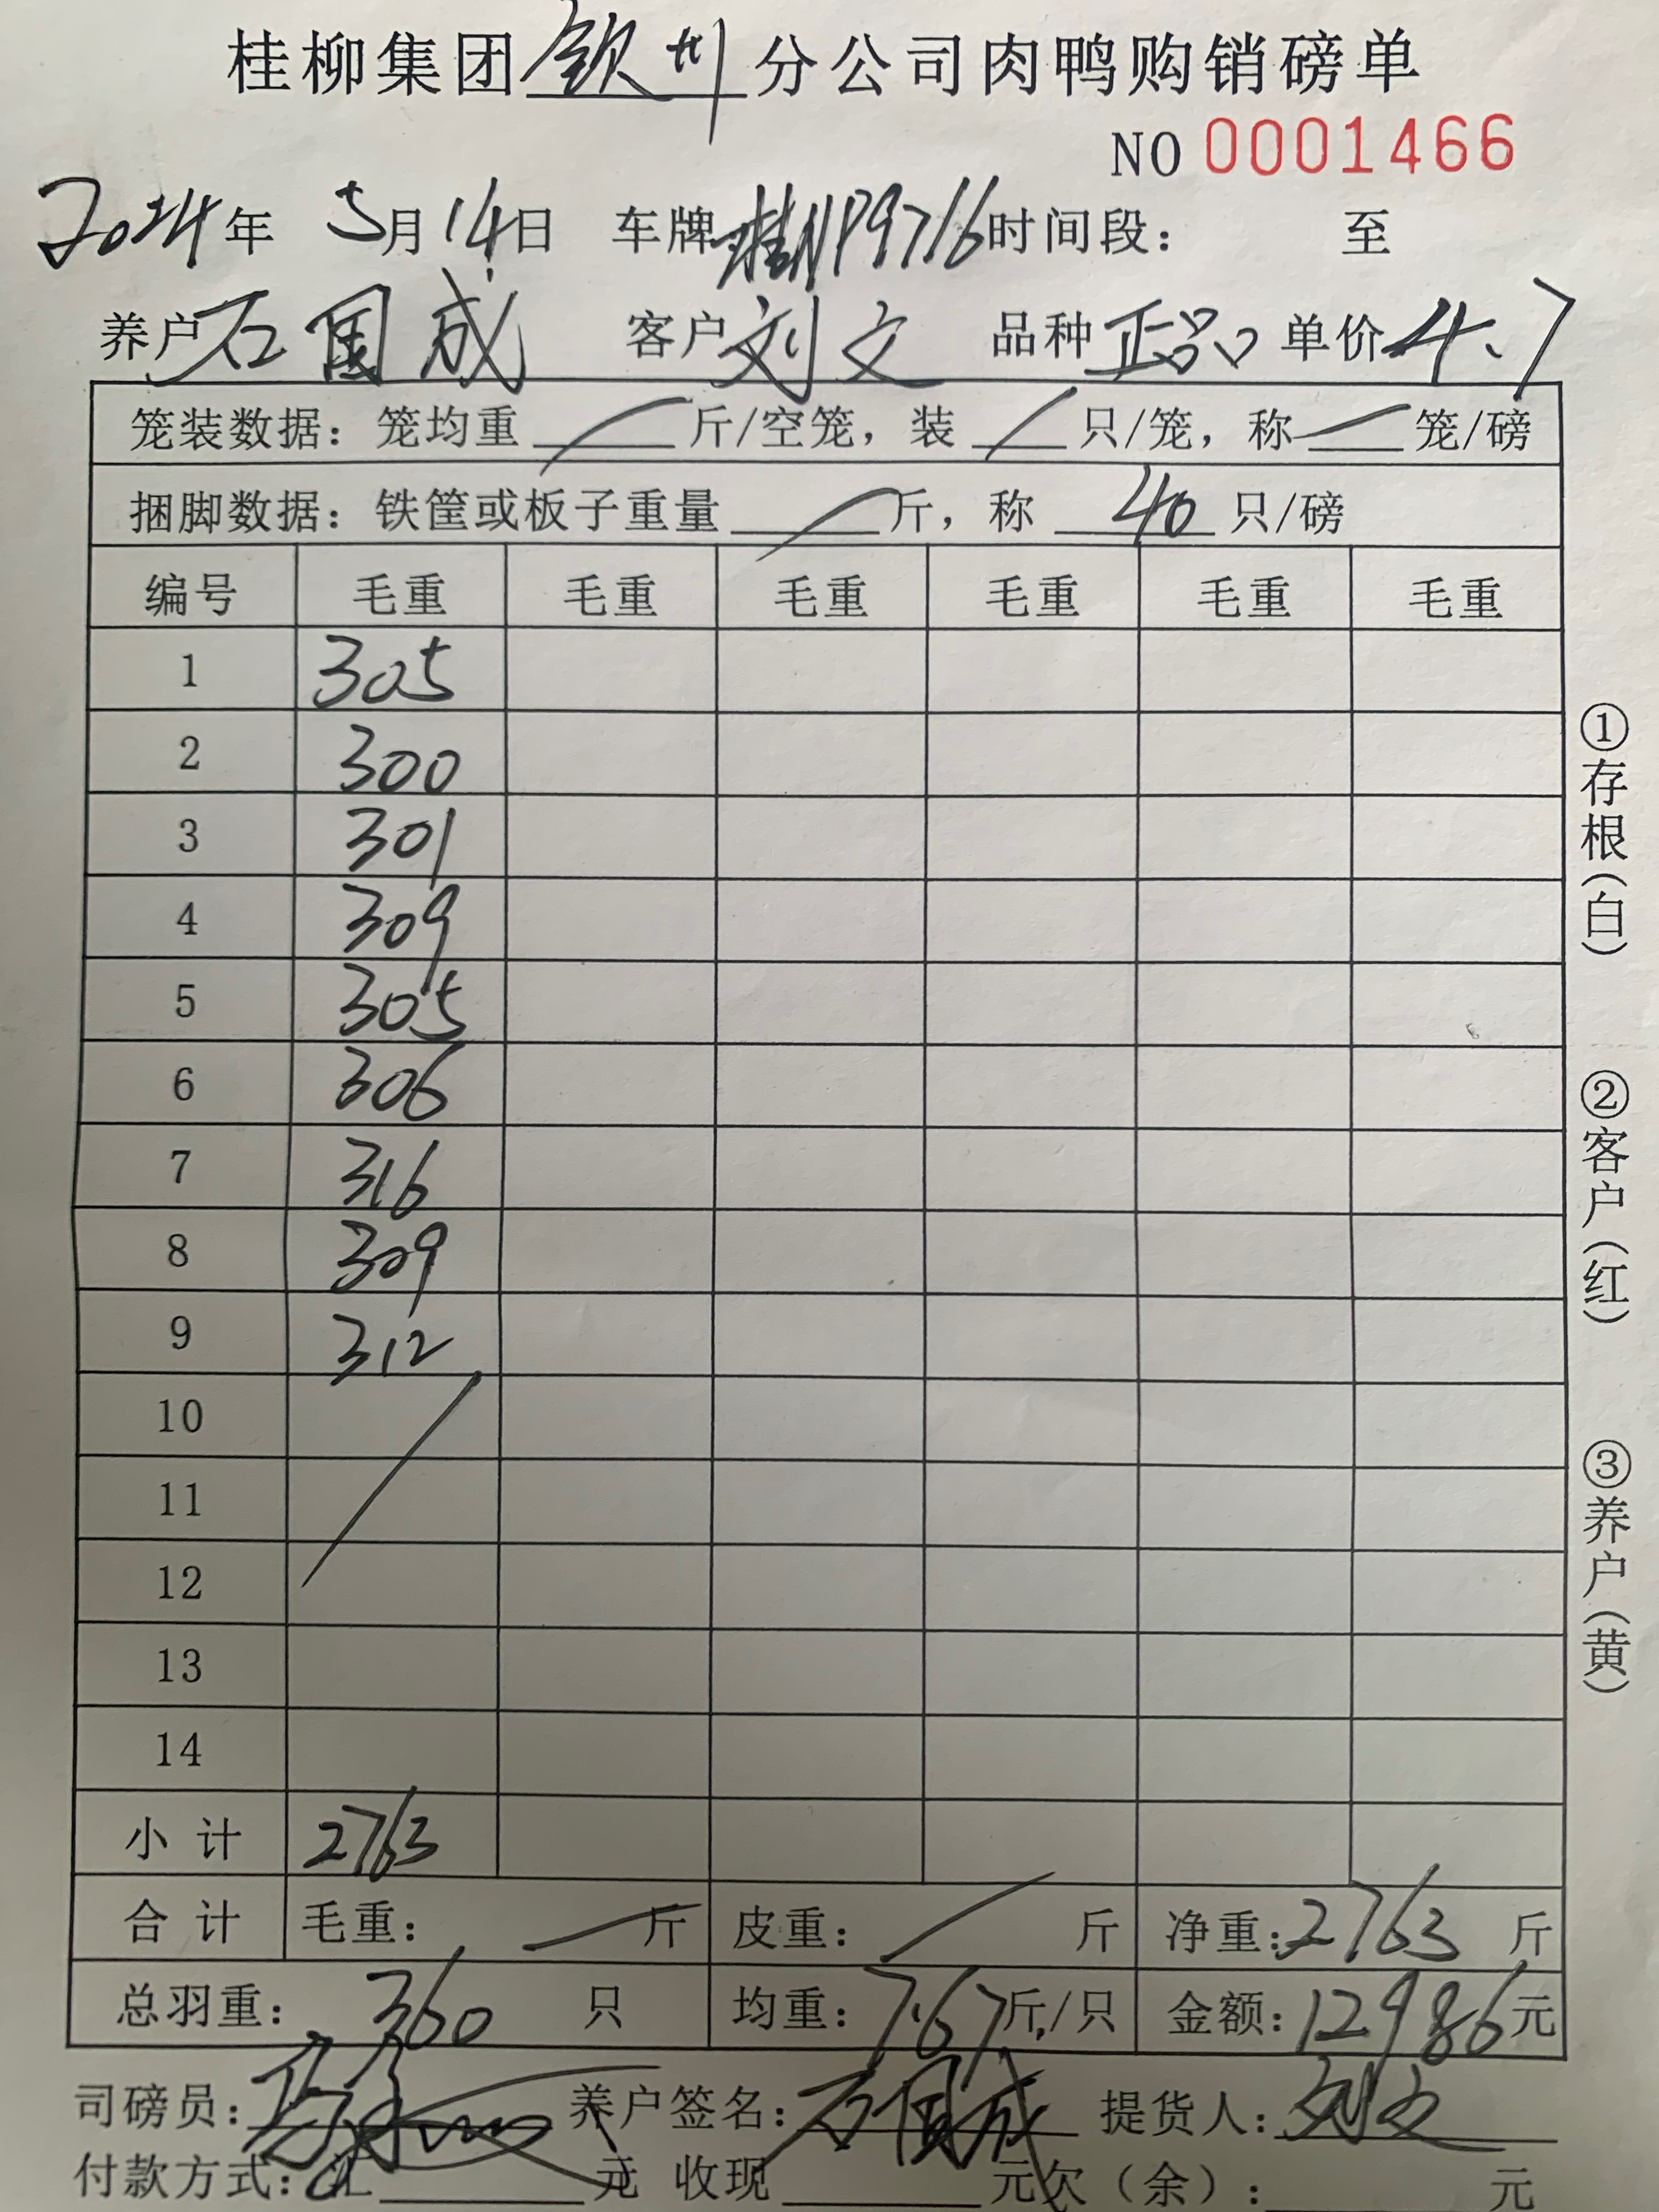 桂柳集团钦州分公司肉鸭购销磅单
NO 0001466
2024年 5月14日 车牌桂NP9716时间段： 至
养户石国成 客户刘文 品种正品 单价4.7
笼装数据：笼均重 斤/空笼，装 只/笼，称 笼/磅
捆脚数据：铁筐或板子重量 斤，称 40 只/磅
编号 毛重 毛重 毛重 毛重 毛重 毛重
1 305
2 300
3 301
4 309
5 305
6 306
7 316
8 309
9 312
10
11
12
13
14
小计 2763
合计 毛重： 斤 皮重： 斤 净重：2763 斤
总羽重： 360 只 均重：7.67斤/只 金额：12986元
司磅员： 养户签名：石国成 提货人：刘文
付款方式：汇 元 收现 元欠（余）： 元
①存根（白）
②客户（红）
③养户（黄）